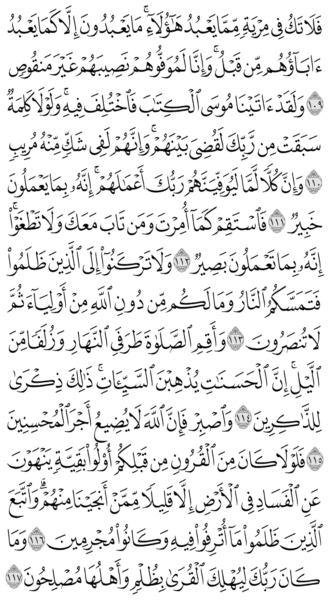 فَلَا تَكُ فِي مِرْيَةٍ مِّمَّا يَعْبُدُ هَٰٓؤُلَآءِ ۚ مَا يَعْبُدُونَ إِلَّا كَمَا يَعْبُدُ
ءَابَآؤُهُم مِّن قَبْلُ ۚ وَإِنَّا لَمُوَفُّوهُمْ نَصِيبَهُمْ غَيْرَ مَنقُوصٍ
١٠٩ وَلَقَدْ ءَاتَيْنَا مُوسَى ٱلْكِتَٰبَ فَٱخْتُلِفَ فِيهِ ۚ وَلَوْلَا كَلِمَةٌ
سَبَقَتْ مِن رَّبِّكَ لَقُضِيَ بَيْنَهُمْ ۚ وَإِنَّهُمْ لَفِي شَكٍّ مِّنْهُ مُرِيبٍ
١١٠ وَإِنَّ كُلًّا لَّمَّا لَيُوَفِّيَنَّهُمْ رَبُّكَ أَعْمَٰلَهُمْ ۚ إِنَّهُۥ بِمَا يَعْمَلُونَ
خَبِيرٌ ١١١ فَٱسْتَقِمْ كَمَآ أُمِرْتَ وَمَن تَابَ مَعَكَ وَلَا تَطْغَوْا۟ ۚ
إِنَّهُۥ بِمَا تَعْمَلُونَ بَصِيرٌ ١١٢ وَلَا تَرْكَنُوٓا۟ إِلَى ٱلَّذِينَ ظَلَمُوا۟
فَتَمَسَّكُمُ ٱلنَّارُ وَمَا لَكُم مِّن دُونِ ٱللَّهِ مِنْ أَوْلِيَآءَ ثُمَّ
لَا تُنصَرُونَ ١١٣ وَأَقِمِ ٱلصَّلَوٰةَ طَرَفَيِ ٱلنَّهَارِ وَزُلَفًا مِّنَ
ٱلَّيْلِ ۚ إِنَّ ٱلْحَسَنَٰتِ يُذْهِبْنَ ٱلسَّيِّـَٔاتِ ۚ ذَٰلِكَ ذِكْرَىٰ
لِلذَّٰكِرِينَ ١١٤ وَٱصْبِرْ فَإِنَّ ٱللَّهَ لَا يُضِيعُ أَجْرَ ٱلْمُحْسِنِينَ
١١٥ فَلَوْلَا كَانَ مِنَ ٱلْقُرُونِ مِن قَبْلِكُمْ أُو۟لُوا۟ بَقِيَّةٍ يَنْهَوْنَ
عَنِ ٱلْفَسَادِ فِي ٱلْأَرْضِ إِلَّا قَلِيلًا مِّمَّنْ أَنجَيْنَا مِنْهُمْ ۗ وَٱتَّبَعَ
ٱلَّذِينَ ظَلَمُوا۟ مَآ أُتْرِفُوا۟ فِيهِ وَكَانُوا۟ مُجْرِمِينَ ١١٦ وَمَا
كَانَ رَبُّكَ لِيُهْلِكَ ٱلْقُرَىٰ بِظُلْمٍ وَأَهْلُهَا مُصْلِحُونَ ١١٧